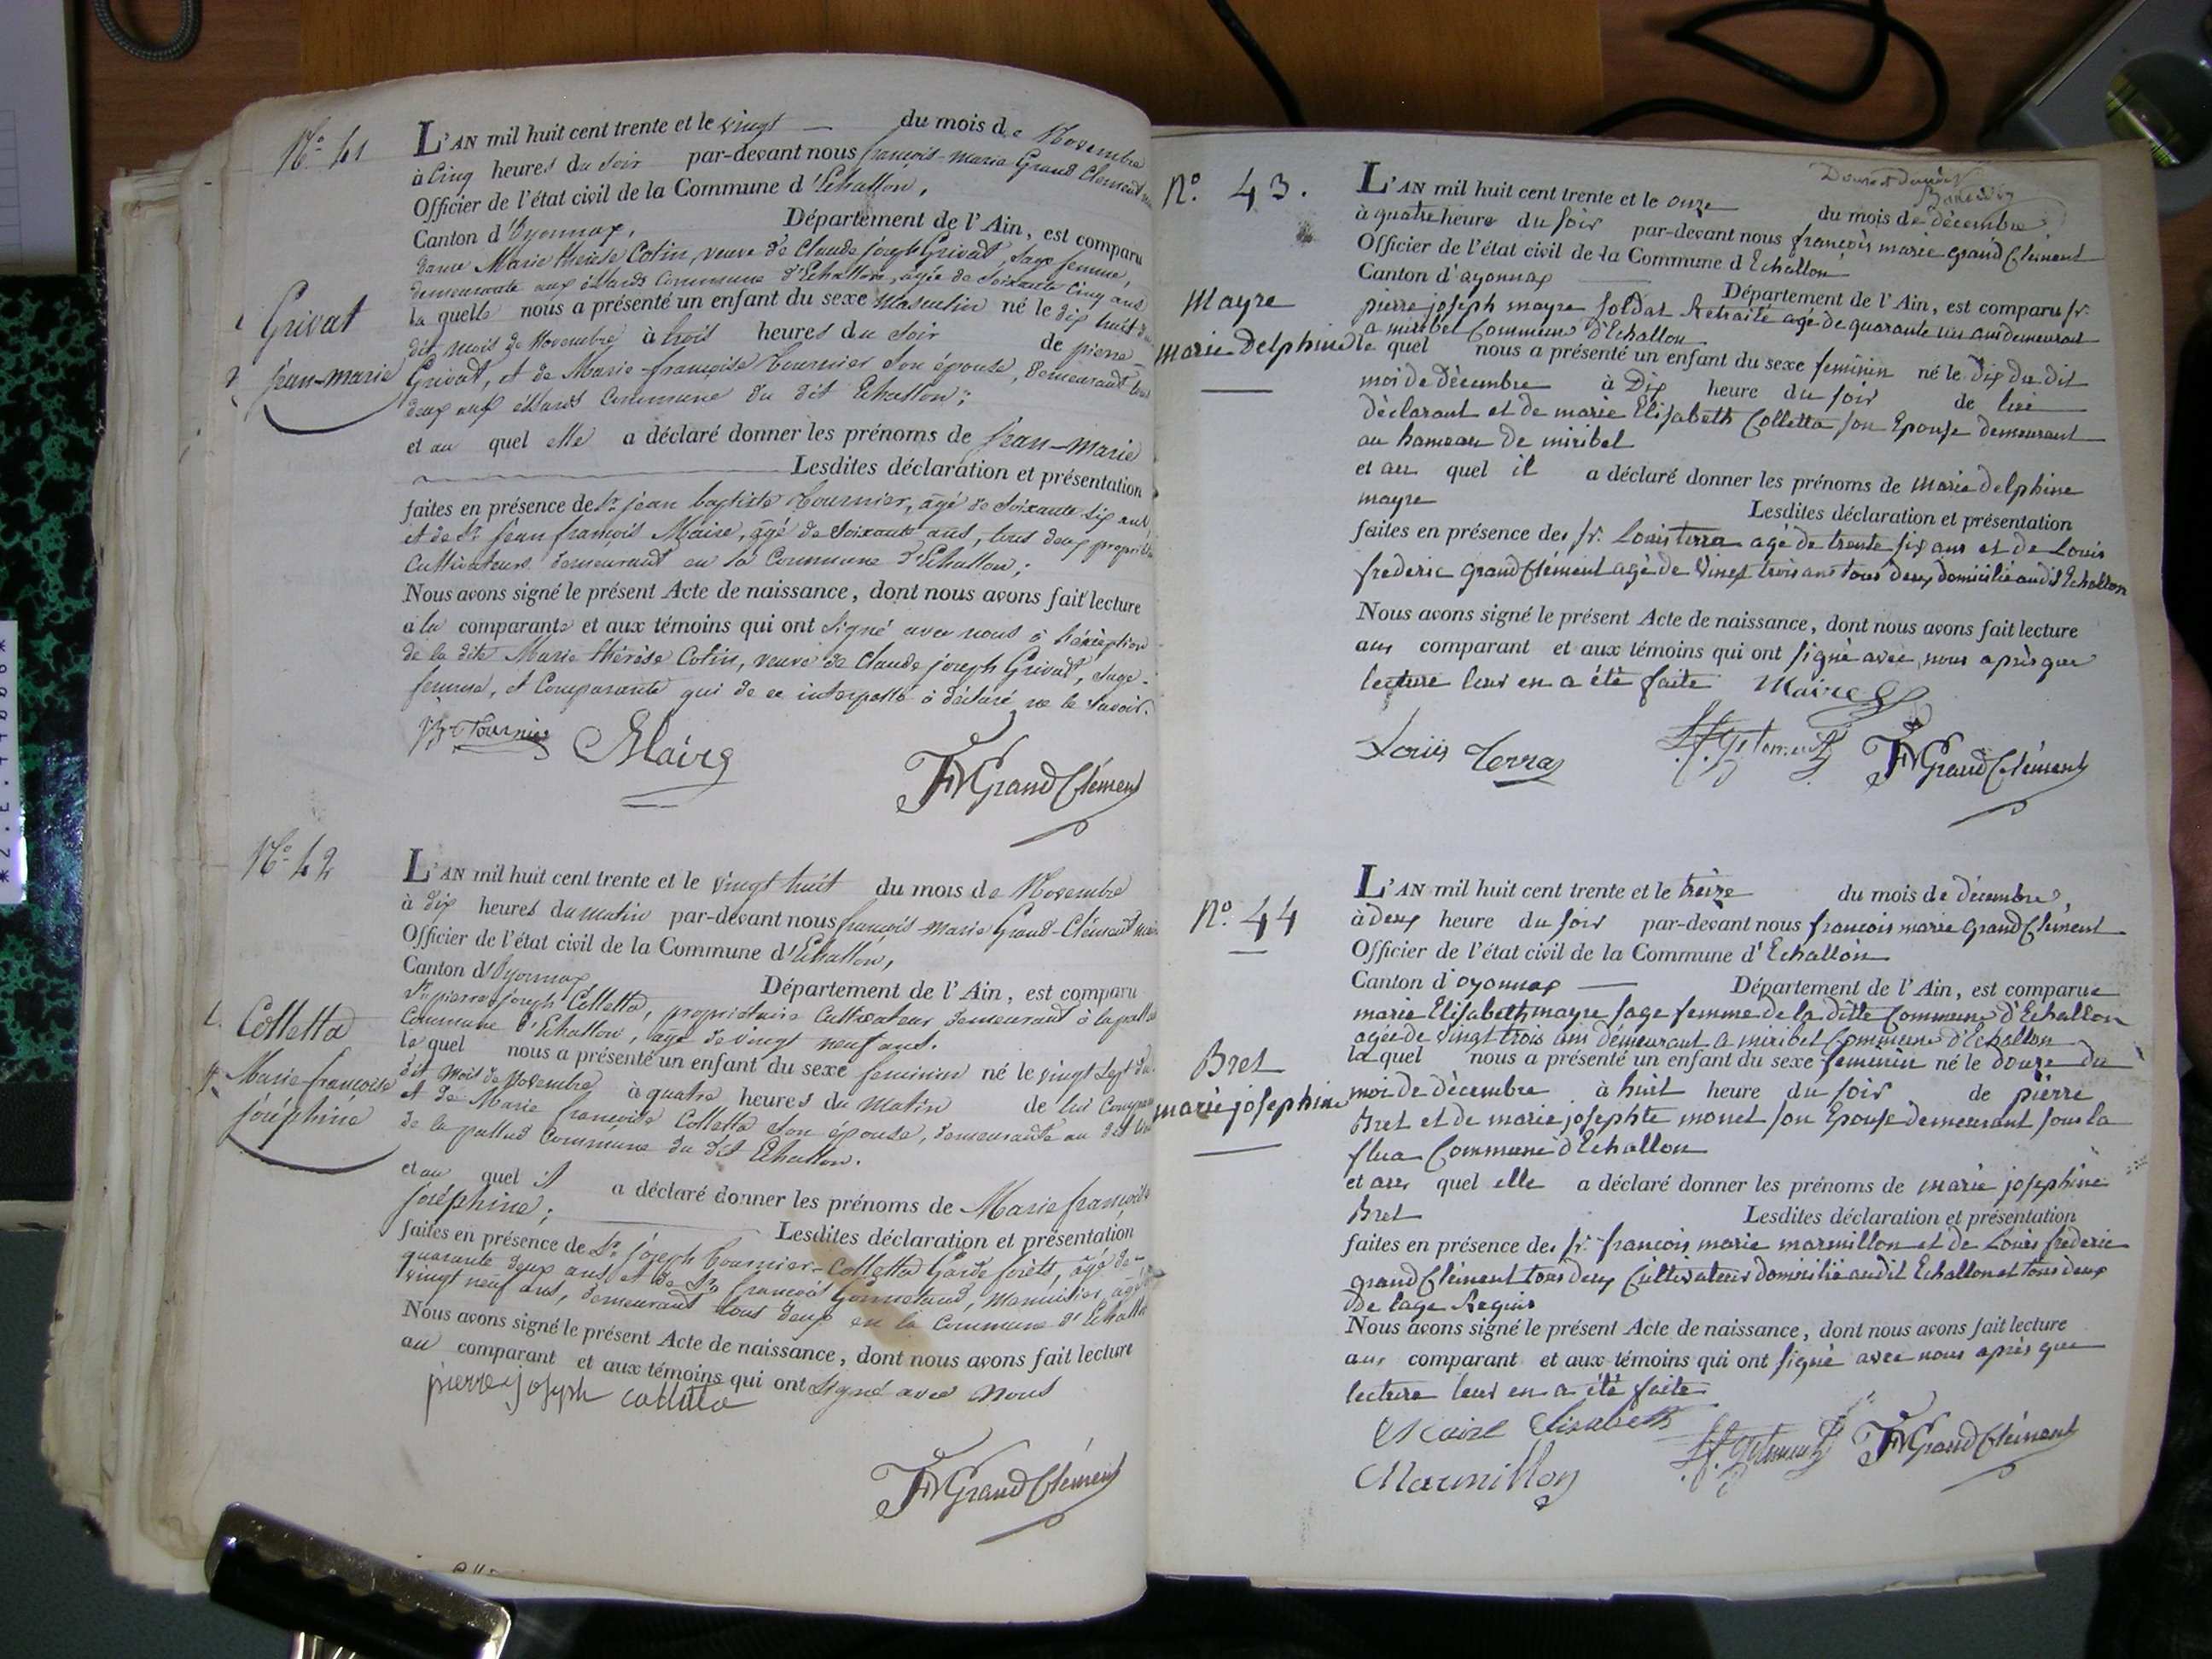 N.° 41
L'AN mil huit cent trente et le vingt — du mois de Novembre
à Cinq heures du Soir par-devant nous françois-marie Grand Clément
Officier de l'état civil de la Commune d'Echallon,
Canton d'Oyonnax, Département de l'Ain, est comparu
dame Marie thérèse Cotin, veuve de Claude joseph Grivat, Sage femme,
demeurante aux éssards Commune d'Echallon, agée de Soixante Cinq ans
la quelle nous a présenté un enfant du sexe Masculin né le dix huit
dit mois de Novembre à trois heures du Soir de pierre
Grivat, et de Marie-françoise tournier Son épouse, demeurant tous
deux aux éssards Commune du dit Echallon;
Grivat
jean-marie
et au quel elle a déclaré donner les prénoms de jean-marie
Lesdites déclaration et présentation
faites en présence de Sr. jean baptiste tournier, agé de Soixante Six ans
et de Sr. jean françois Maire, agé de Soixante ans, tous deux
Cultivateurs demeurant en la Commune d'Echallon;
Nous avons signé le présent Acte de naissance, dont nous avons fait lecture
à la comparante et aux témoins qui ont Signé avec nous à
de la dite Marie thérèse Cotin, veuve de Claude joseph Grivat, Sage-
femme, et Comparante qui de ce interpellé à déclaré ne le Savoir.
Tournier Maire
FMGrand Clément
N.° 42
L'AN mil huit cent trente et le vingt huit du mois de Novembre
à dix heures du matin par-devant nous françois-marie Grand-Clément
Officier de l'état civil de la Commune d'Echallon,
Canton d'Oyonnax Département de l'Ain, est comparu
Sr. pierre-joseph Colletta, propriétaire Cultivateur demeurant à
Commune d'Echallon, agé de vingt neuf ans.
le quel nous a présenté un enfant du sexe feminin né le vingt Sept du
dit mois de Novembre à quatre heures du Matin de lui
et de Marie françoise Colletta Son épouse, demeurante au dit
de la pallud Commune du dit Echallon.
Colletta
Marie-françoise
joséphine
et au quel il a déclaré donner les prénoms de Marie françoise
joséphine; Lesdites déclaration et présentation
faites en présence de Sr. joseph tournier-Colletta Garde forêts, âgé de
quarante deux ans et de Sr. françois menuisier,
vingt neuf ans, demeurant tout deux en la Commune d'Echallon
Nous avons signé le présent Acte de naissance, dont nous avons fait lecture
au comparant et aux témoins qui ont Signé avec Nous
pierre joseph colleta
FMGrand Clément
N.° 43.
L'AN mil huit cent trente et le onze du mois de décembre
à quatre heure du Soir par-devant nous françois marie grand Clément
Officier de l'état civil de la Commune d'Echallon
Canton d'ayonnax Département de l'Ain, est comparu Sr.
pierre joseph mayre Soldat Retraité agé de quarante un ans demeurant
a miribel Commune d'Echallon
le quel nous a présenté un enfant du sexe feminin né le Dix du dit
moi de décembre à Dix heure du Soir de lui
déclarant et de marie Elisabeth Colletta Son Epouse demeurant
au hameau de miribel
Mayre
marie Delphine
et au quel il a déclaré donner les prénoms de Marie delphine
mayre Lesdites déclaration et présentation
faites en présence des Sr. Louis terra agé de trente Six ans et de Louis
frederic grand Clément agé de Vingt trois ans tous deux domicilié audit Echallon
Nous avons signé le présent Acte de naissance, dont nous avons fait lecture
aux comparant et aux témoins qui ont Signé avec nous après que
lecture leur en a été faite Maire
Louis terra FMGrand Clément
N.° 44
L'AN mil huit cent trente et le treize du mois de décembre,
à Deux heure du Soir par-devant nous francois marie grand Clément
Officier de l'état civil de la Commune d'Echallon
Canton d'oyonnax Département de l'Ain, est comparue
marie Elisabeth mayre Sage femme de la ditte Commune d'Echallon
agée de Vingt trois ans démeurant a miribel Commune d'Echallon
la quel nous a présenté un enfant du sexe feminin né le douze du
moi de décembre à huit heure du Soir de pierre
Bret et de marie josephte monet Son Epouse demeurant Sous la
flua Commune d'Echallon
Bret
marie josephine
et aux quel elle a déclaré donner les prénoms de marie josephine
Bret Lesdites déclaration et présentation
faites en présence des Sr. francois marie marmillon et de Louis frederic
grand Clément tous deux Cultivateur domicilié audit Echallon et tous deux
De lage Requis
Nous avons signé le présent Acte de naissance, dont nous avons fait lecture
aux comparant et aux témoins qui ont Signé avec nous après que
lecture leur en a été faite
Maire Elisabeth FMGrand Clément
Marmillon